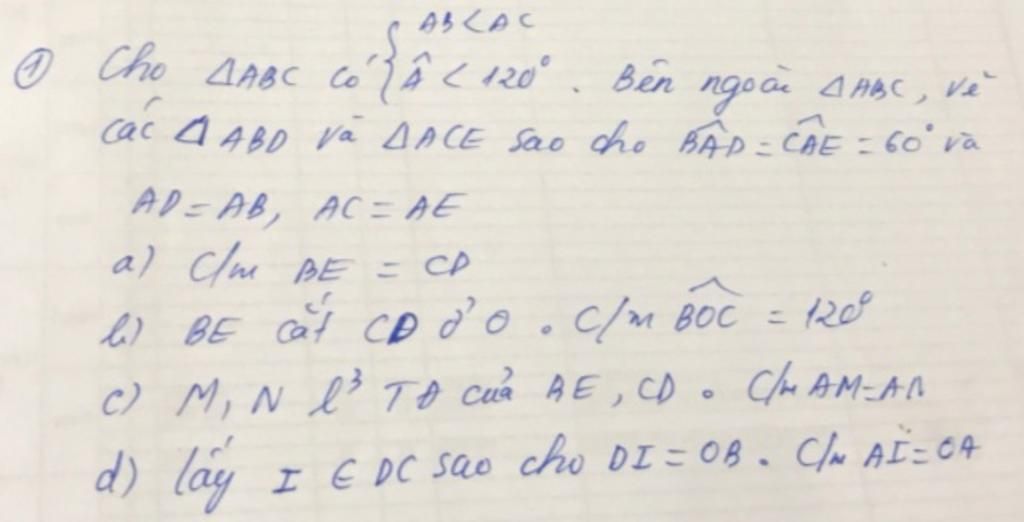 AB < AC
① Cho △ABC có { Â < 120°. Bên ngoài △ABC, vẽ
các △ABD và △ACE sao cho BÂD = CÂE = 60° và
AD = AB, AC = AE
a) C/m BE = CD
b) BE cắt CD ở O. C/m BOC = 120°
c) M, N l³ TĐ của BE, CD. C/m AM = AN
d) lấy I ∈ DC sao cho DI = OB. C/m AI = OA